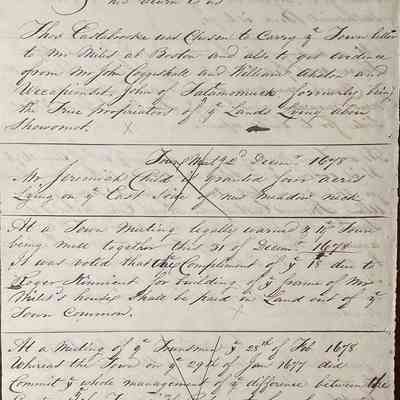 his
Thos Eastobrooke was Chosen to Carry ye Town letter
to Mr Miles at Boston and also to get evidence
from Mr John Coggshall and William and
John of formerly being
the True Propriators of ye Lands Lying above
Showomet.
Town Meet 2d Decemr 1678
Mr Jeremiah Child is granted four acres
Lying on ye East Side of new meadow neck
At a Town Meeting legally warned & ye Town
being mett together this 31 of Decemr 1678
it was voted that the Compliment of ye due to
Roger Kinnicut for building of ye frame of Mr
Miles's house Shall be paid in Land out of ye
Town Common.
At a Meeting of ye Townsmen ye 28th of Feb 1678
Whereas the Town on ye 29th of Jan 1677 did
Commit ye whole management of ye difference between the